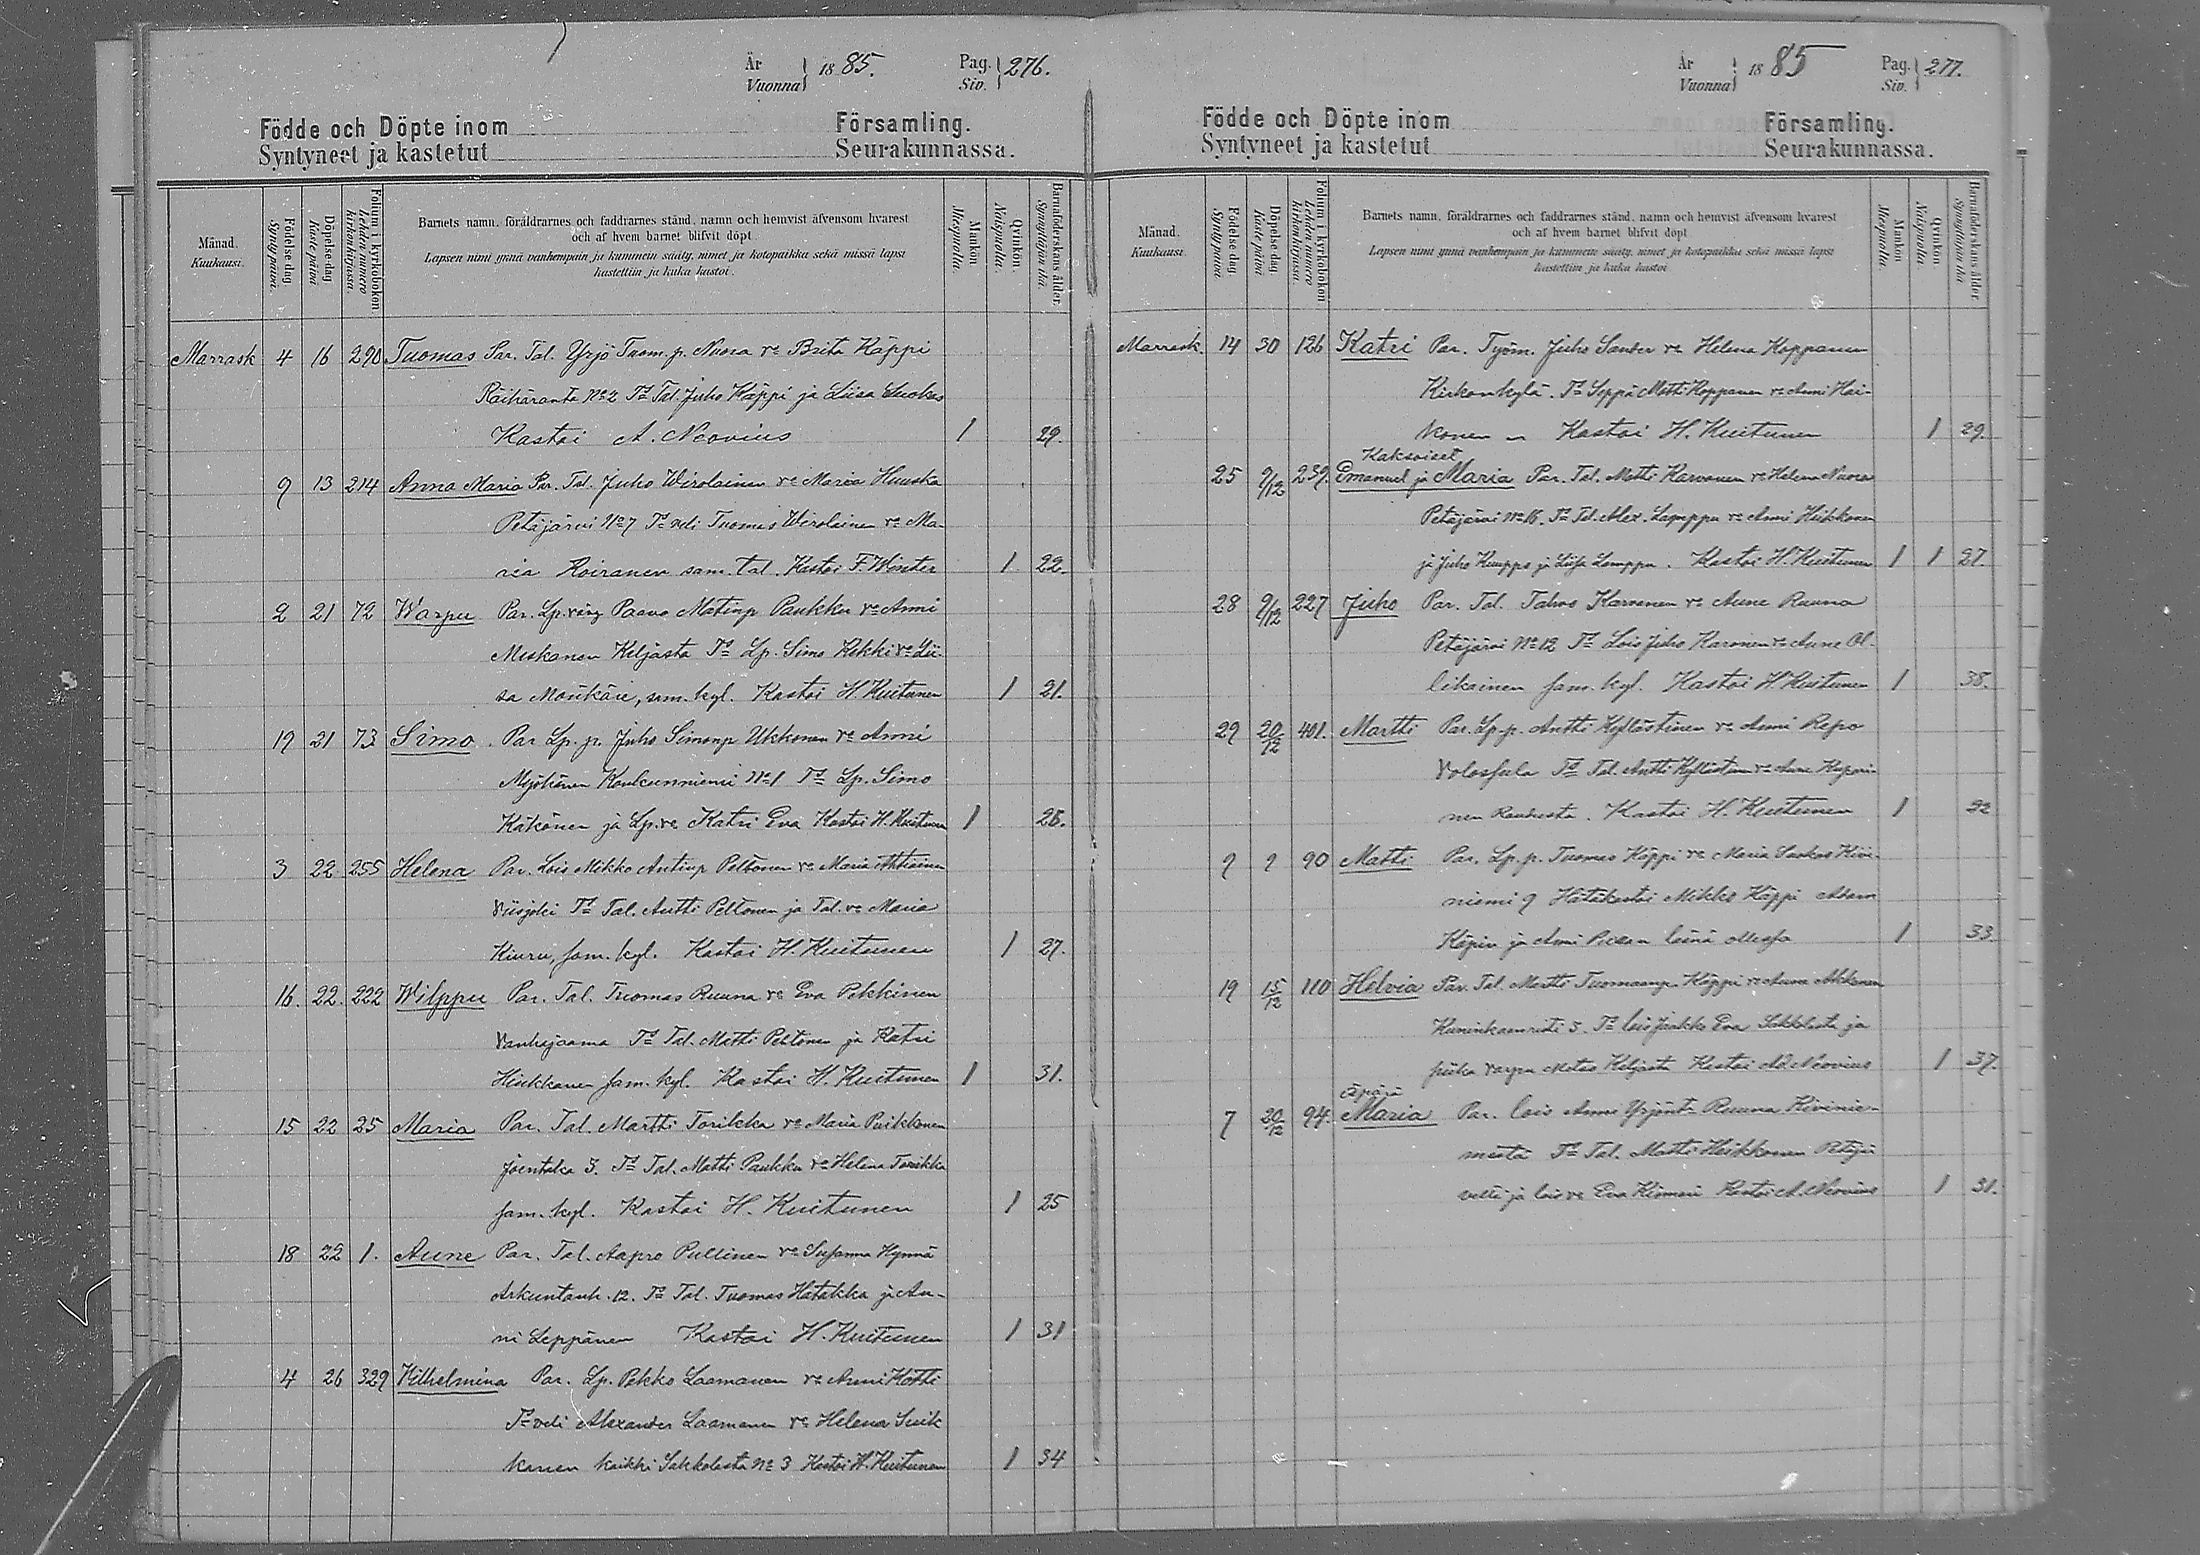 År
Vuonna } 1885.
Pag.
Siv. } 276.
Födde och Döpte inom Församling.
Syntyneet ja kastetut Seurakunnassa.
Månad.
Kuukausi.
Födelse dag
Syntypäivä.
Döpelse-dag
Kastepäivä
Folium i kyrkoboken.
Lehden numero
kirkonkirjassa.
Barnets namn, föräldrarnes och faddrarnes stånd, namn och hemvist äfvensom hvarest
och af hvem barnet blifvit döpt.
Lapsen nimi ynnä vanhempain ja kummein sääty, nimet ja kotopaikka sekä missä lapsi
kastettiin ja kuka kastoi.
Mankön.
Miespuolia.
Qvinkön.
Naispuolia.
Barnaföderskans ålder.
Synnyttäjän ikä.
Marrask 4 16 290 Tuomas Par. Tal. Yrjö Tuom. p. Nuora va Brita Käppi
Räihäranta No 2 Td Tal. Juho Käppi ja Liisa Suokas
Kastoi A. Neovius 1 29.
9 13 214 Anna Maria Par. Tal. Juho Wirolainen va Maria Huuska
Petäjärvi No 7 Td veli Tuomas Wirolainen va Ma-
ria Roiranen sam. tal. Kastoi F. Winter 1 22.
2 21 72 Warpu Par. Lp. väv Paavo Matinp Paukku va Anni
Miskanen Keljasta Td Lp. Simo Kekki va Lii-
sa Monkäre, sam. kyl. Kastoi H. Kuitunen 1 21.
19 21 73 Simo. Par Lp. p. Juho Simonp Ukkonen va Anni
Myöhänen Koukunniemi No 1 Td Lp. Simo
Käkönen ja Lp. va Katri Eva Kastoi H. Kuitunen 1 28.
3 22 255 Helena Par. Lois Mikko Antinp Peltonen va Maria Ahtiainen
Viisjoki Td Tal. Antti Peltonen ja Tal. va Maria
Kiuru, sam. kyl. Kastoi H. Kuitunen 1 27.
16. 22. 222 Wilppu Par. Tal. Tuomas Ruuna va Eva Pekkinen
Vanhajaama Td Tal. Matti Peltonen ja Katri
Hiukkanen sam. kyl. Kastoi H. Kuitunen 1 31.
15 22 25 Maria Par. Tal. Martti Torikka va Maria Puikkonen
Joentaka 3. Td Tal. Matti Paukku va Helena Torikka
sam. kyl. Kastoi H. Kuitunen 1 25
18 22 1. Aune Par. Tal. Aapro Pullinen va Susanna Hynnä
Arkuntanh. 12. Td Tal. Tuomas Hatakka ja An-
ni Leppänen Kastoi H. Kuitunen 1 31
4 26 329 Vilhelmina Par. Lp. Pekko Laamanen va Anni Kotti
Td veli Alexander Laamanen va Helena Suik
kanen kaikki Sakkolasta No 3 Kastoi H. Kuitunen 1 34
År
Vuonna } 1885
Pag.
Siv. } 277.
Födde och Döpte inom Församling.
Syntyneet ja kastetut Seurakunnassa.
Månad.
Kuukausi.
Födelse dag
Syntypäivä.
Döpelse-dag
Kastepäivä
Folium i kyrkoboken
Lehden numero
kirkonkirjassa.
Barnets namn, föräldrarnes och faddrarnes stånd, namn och hemvist äfvensom hvarest
och af hvem barnet blifvit döpt.
Lapsen nimi ynnä vanhempain ja kummein sääty, nimet ja kotopaikka sekä missä lapsi
kastettiin ja kuka kastoi
Mankön
Miespuolia.
Qvinkön
Naispuolia.
Barnaföderskans ålder
Synnyttäjän ikä
Marrask. 14 30 126 Katri Par. Työm. Juho Santer va Helena Koppanen
Kirkonkylä. Td Seppä Matti Koppanen va Anni Hai-
konen Kastoi H. Kuitunen 1 29.
Kaksoiset
25 9/12 239. Emanuel ja Maria Par. Tal. Matti Karvanen va Helena Nuora
Petäjärvi No 16. Td Tal. Alex. Lamppu va Anni Hiukkanen
ja Juho Kuuppo ja Liisa Lamppu. Kastoi H. Kuitunen 1 1 27.
28 9/12 227 Juho Par. Tal. Tahvo Karvanen va Aune Ruuna
Petäjärvi No 12 Td Lois Juho Karvinen va Aune Ol-
likainen sam. kyl. Kastoi H. Kuitunen 1 38.
29 20/12 401. Martti Par. Lp. p. Antti Kyllästinen va Anni Repo
Volossula Td Tal. Antti Kyllästinen va Anna Kupari-
nen Raudusta. Kastoi H. Kuitunen 1 22
? ? 90 Matti Par. Lp. p. Tuomas Käppi va Maria Suokas Kivi-
niemi 9 Hätäkastoi Mikko Käppi Adam
Käpin ja Anni läsnä ollessa 1 33
19 15/12 110 Helvia Par. Tal. Martti Tuomaanp. Käppi va Anna Akkanen
Kuninkaanristi 5. Td lois Jaakko Eva Sakkolasta ja
piika Varpu Matas Keljasta Kastoi Ad. Neovius 1 37.
äpärä
7 20/12 94. Maria Par. lois Anni Yrjönt. Ruuna Kivinie-
mestä Td Tal. Matti Heikkonen Petäjä
veltä ja lois va Eva Kiimari Kastoi A. Neovius 1 31.